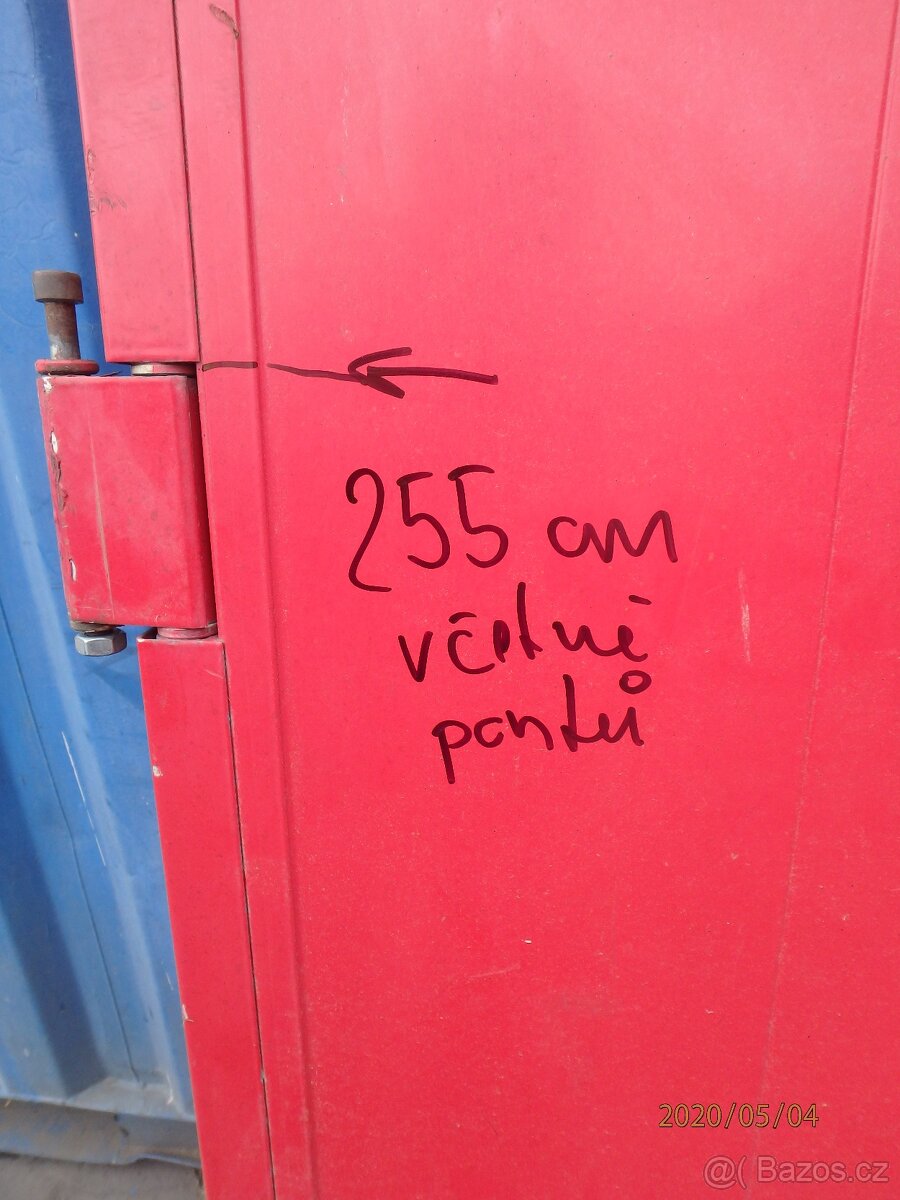 255 cm
včetně
pantů
2020/05/04
@( Bazos.cz